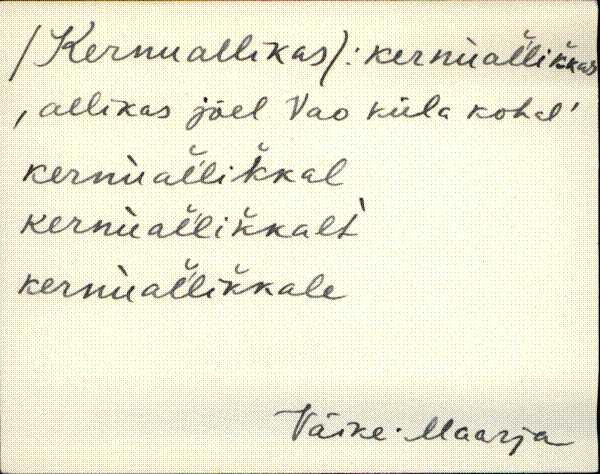 /Kernuallikas/: kernùal̆likkas
, allikas jõel Vao küla kohal'
kernùal̆lik̆kal
kernùal̆lik̆kalt̀
kernùal̆lik̆kale
Väike-Maarja